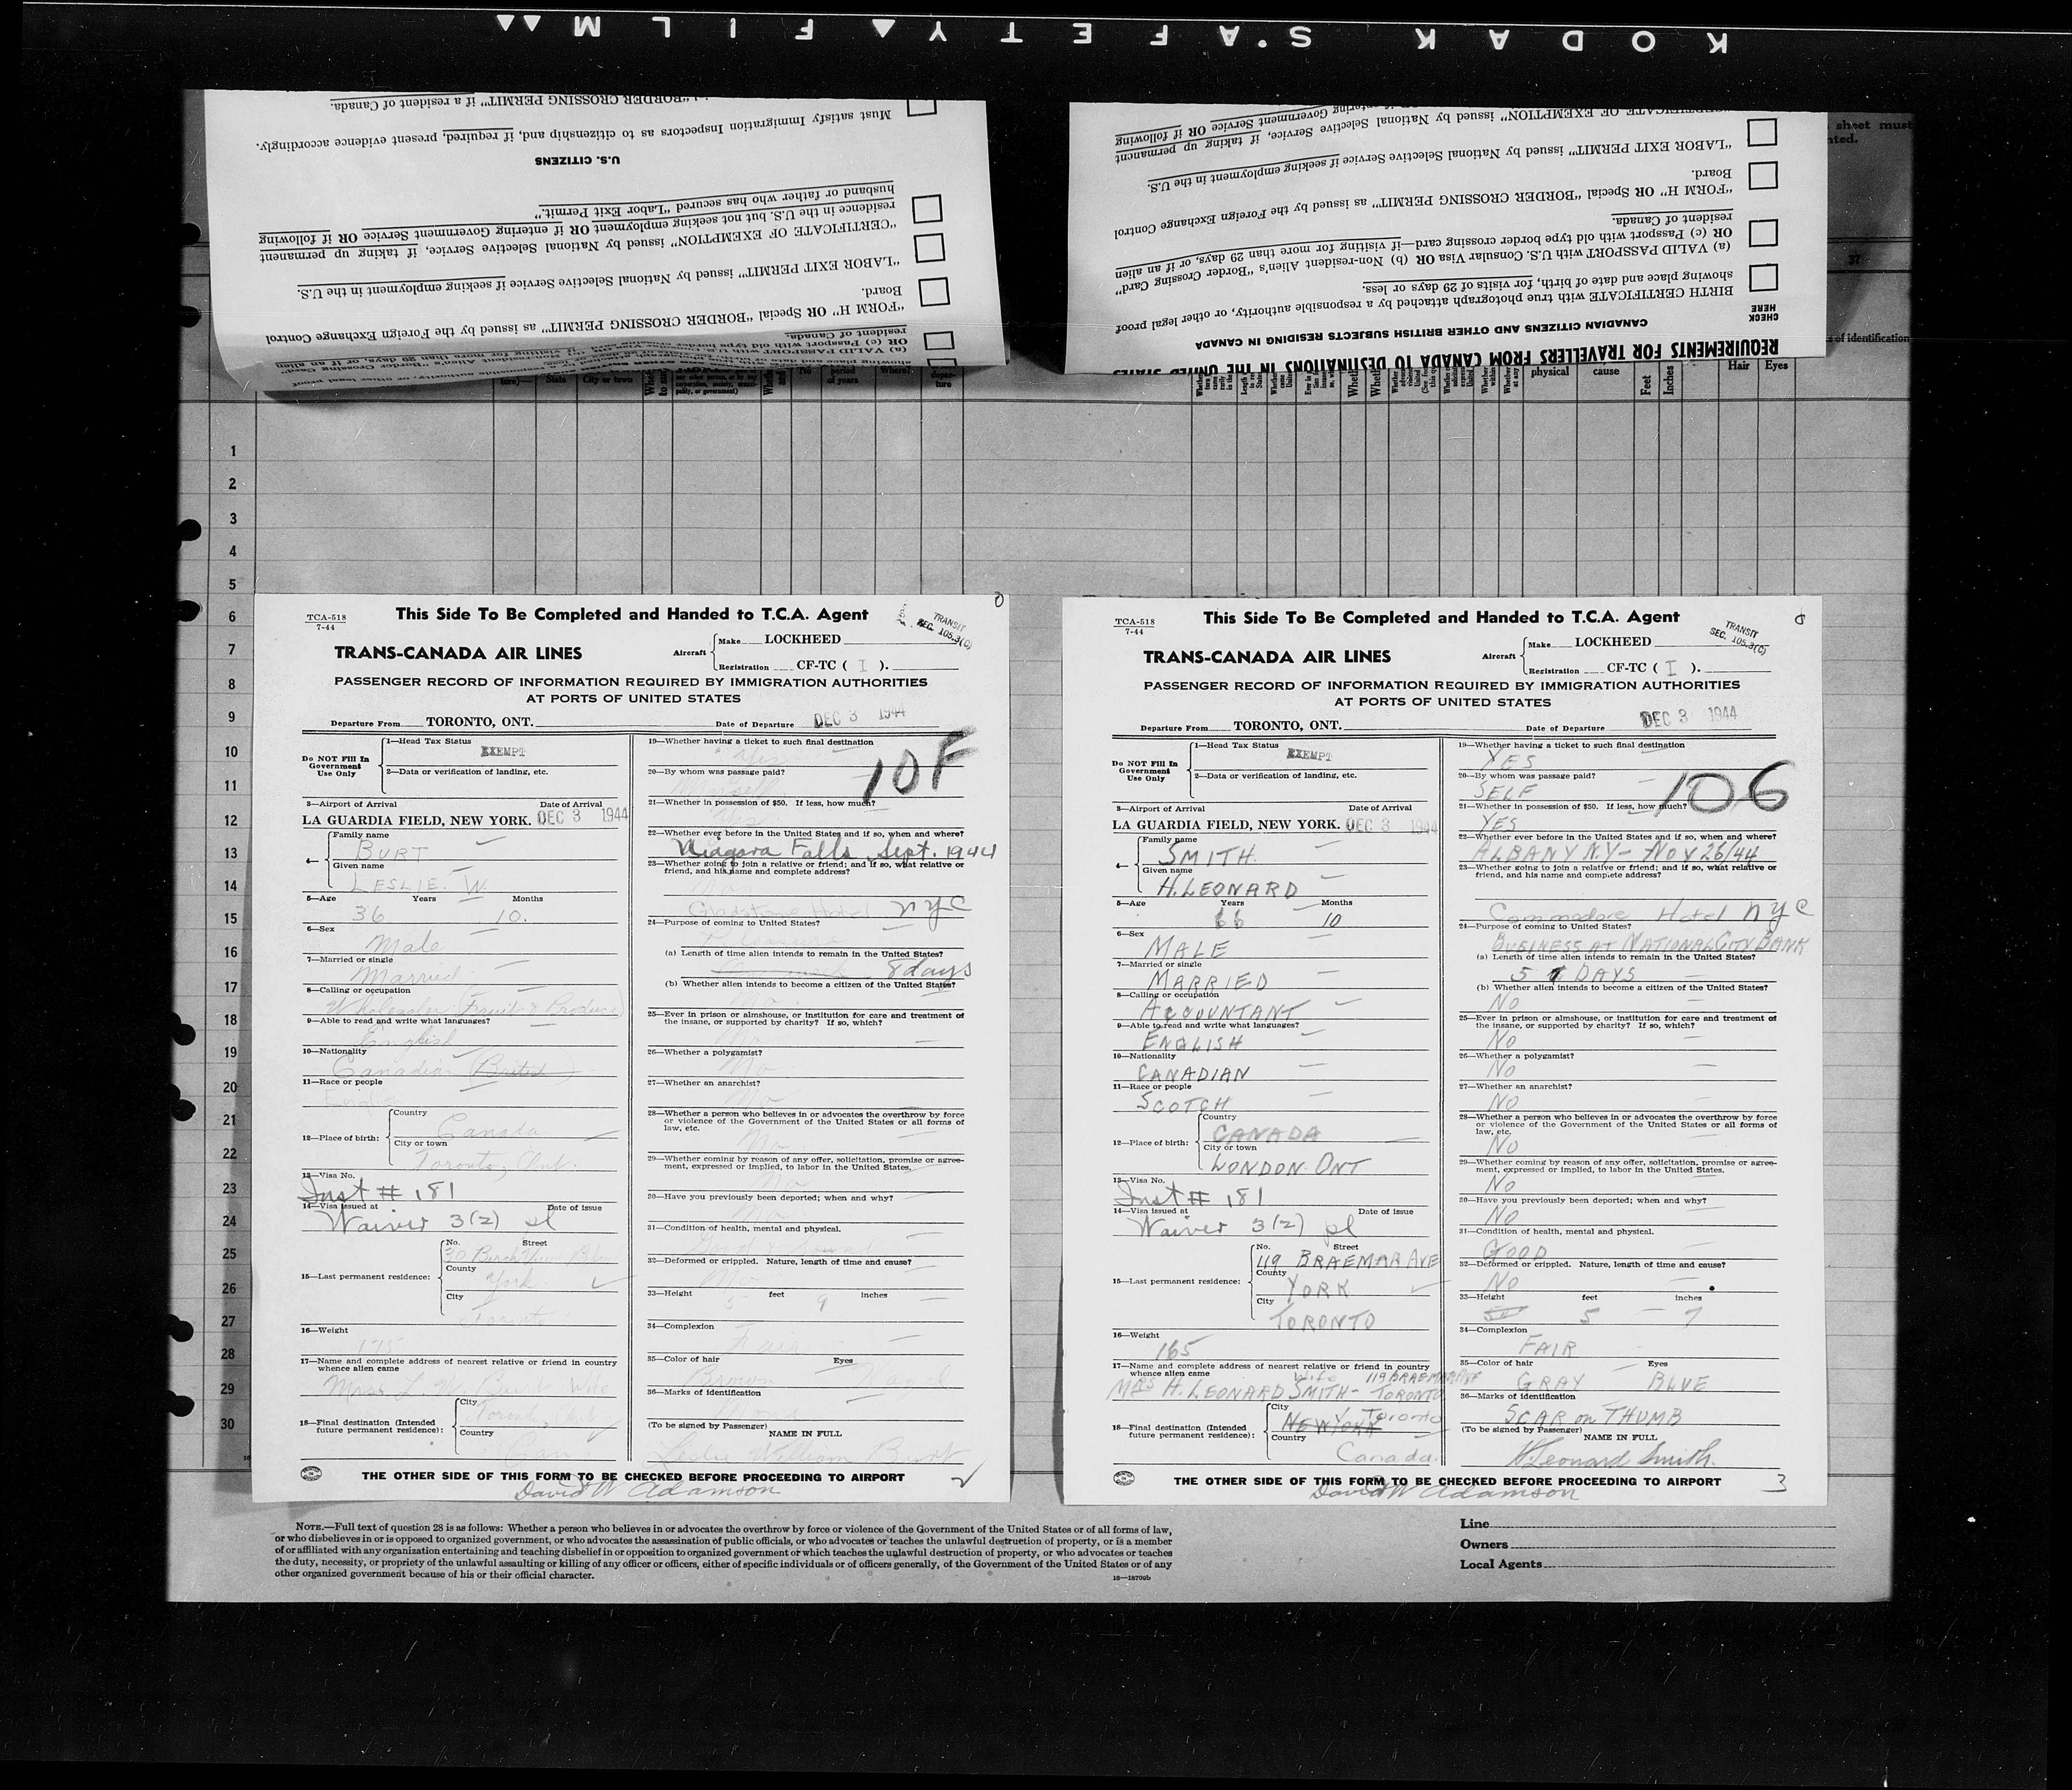 KODAK S'AFETY ▲ FILM ▲▲
REQUIREMENTS FOR TRAVELLERS FROM CANADA TO DESTINATIONS IN THE UNITED STATES
CHECK HERE
CANADIAN CITIZENS AND OTHER BRITISH SUBJECTS RESIDING IN CANADA
BIRTH CERTIFICATE with true photograph attached by a responsible authority, or other legal proof
showing place and date of birth, for visits of 29 days or less.
(a) VALID PASSPORT with U.S. Consular Visa OR (b) Non-resident Alien's "Border Crossing Card"
OR (c) Passport with old type border crossing card—if visiting for more than 29 days, or if an alien
resident of Canada.
"FORM H" OR Special "BORDER CROSSING PERMIT" as issued by the Foreign Exchange Control
Board.
"LABOR EXIT PERMIT" issued by National Selective Service if seeking employment in the U.S.
"CERTIFICATE OF EXEMPTION" issued by National Selective Service, if taking up permanent
OR if entering Government Service OR if following
OR (c) Passport with old type border
resident of Canada.
"FORM H" OR Special "BORDER CROSSING PERMIT" as issued by the Foreign Exchange Control
Board.
"LABOR EXIT PERMIT" issued by National Selective Service if seeking employment in the U.S.
"CERTIFICATE OF EXEMPTION" issued by National Selective Service, if taking up permanent
residence in the U.S. but not seeking employment OR if entering Government Service OR if following
husband or father who has secured "Labor Exit Permit."
U.S. CITIZENS
Must satisfy Immigration Inspectors as to citizenship and, if required, present evidence accordingly.
"BORDER CROSSING PERMIT" if a resident of Canada.
sheet must
nted.
37
s of identification
State City or town No period of years Where? depar-ture
physical cause Feet Inches Hair Eyes
1
2
3
4
5
6
7
8
9
10
11
12
13
14
15
16
17
18
19
20
21
22
23
24
25
26
27
28
29
30
TCA-518
7-44
This Side To Be Completed and Handed to T.C.A. Agent
TRANSIT
SEC. 105.3(C)
TRANS-CANADA AIR LINES
Aircraft Make LOCKHEED
Registration CF-TC ( I ).
PASSENGER RECORD OF INFORMATION REQUIRED BY IMMIGRATION AUTHORITIES
AT PORTS OF UNITED STATES
Departure From TORONTO, ONT. Date of Departure DEC 3 1944
Do NOT Fill In Government Use Only
1—Head Tax Status EXEMPT
2—Data or verification of landing, etc.
3—Airport of Arrival Date of Arrival
LA GUARDIA FIELD, NEW YORK. DEC 3 1944
4— Family name
BURT
Given name
LESLIE. W.
5—Age Years Months
36 10.
6—Sex
Male
7—Married or single
Married
8—Calling or occupation
Wholesaler Fruit & Produce
9—Able to read and write what languages?
English
10—Nationality
Canadian (British)
11—Race or people
English
12—Place of birth: Country
Canada
City or town
Toronto, Ont.
13—Visa No.
Inst # 181
14—Visa issued at Date of issue
Waiver 3(2) pl
15—Last permanent residence: No. Street
30 BirchView Blvd
County
York
City
Toronto
16—Weight
175
17—Name and complete address of nearest relative or friend in country
whence alien came
Mrs. L. W. Burt Wife
18—Final destination (Intended
future permanent residence): City
Toronto,
Country
19—Whether having a ticket to such final destination
Yes
10F
20—By whom was passage paid?
Myself
21—Whether in possession of $50. If less, how much?
Yes
22—Whether ever before in the United States and if so, when and where?
Niagara Falls Sept. 1944
23—Whether going to join a relative or friend; and if so, what relative or
friend, and his name and complete address?
No
Gladstone Hotel NYC
24—Purpose of coming to United States?
Pleasure
(a) Length of time alien intends to remain in the United States?
8 days
(b) Whether alien intends to become a citizen of the United States?
No
25—Ever in prison or almshouse, or institution for care and treatment of
the insane, or supported by charity? If so, which?
No
26—Whether a polygamist?
No
27—Whether an anarchist?
No
28—Whether a person who believes in or advocates the overthrow by force
or violence of the Government of the United States or all forms of
law, etc.
No
29—Whether coming by reason of any offer, solicitation, promise or agree-
ment, expressed or implied, to labor in the United States.
No
30—Have you previously been deported; when and why?
No
31—Condition of health, mental and physical.
Good
32—Deformed or crippled. Nature, length of time and cause?
No
33—Height feet inches
5 9
34—Complexion
Fair
35—Color of hair Eyes
Brown Hazel
36—Marks of identification
(To be signed by Passenger)
NAME IN FULL
Leslie William Burt
THE OTHER SIDE OF THIS FORM TO BE CHECKED BEFORE PROCEEDING TO AIRPORT
David W Adamson
2
TCA-518
7-44
This Side To Be Completed and Handed to T.C.A. Agent
TRANSIT
SEC. 105.3(C)
TRANS-CANADA AIR LINES
Aircraft Make LOCKHEED
Registration CF-TC ( I ).
PASSENGER RECORD OF INFORMATION REQUIRED BY IMMIGRATION AUTHORITIES
AT PORTS OF UNITED STATES
Departure From TORONTO, ONT. Date of Departure DEC 3 1944
Do NOT Fill In Government Use Only
1—Head Tax Status EXEMPT
2—Data or verification of landing, etc.
3—Airport of Arrival Date of Arrival
LA GUARDIA FIELD, NEW YORK. DEC 3 1944
4— Family name
SMITH
Given name
H. LEONARD
5—Age Years Months
66 10
6—Sex
MALE
7—Married or single
MARRIED
8—Calling or occupation
ACCOUNTANT
9—Able to read and write what languages?
ENGLISH
10—Nationality
CANADIAN
11—Race or people
SCOTCH
12—Place of birth: Country
CANADA
City or town
LONDON. ONT
13—Visa No.
Inst # 181
14—Visa issued at Date of issue
Waiver 3(2) pl
15—Last permanent residence: No. Street
119 BRAEMAR AVE
County
YORK
City
TORONTO
16—Weight
165
17—Name and complete address of nearest relative or friend in country
whence alien came Wife 119 BRAEMAR AVE
MRS H. LEONARD SMITH - TORONTO
18—Final destination (Intended
future permanent residence): City
NEW YORK Toronto
Country
Canada.
19—Whether having a ticket to such final destination
YES
106
20—By whom was passage paid?
SELF
21—Whether in possession of $50. If less, how much?
YES
22—Whether ever before in the United States and if so, when and where?
ALBANY N.Y - NOV 26/44
23—Whether going to join a relative or friend; and if so, what relative or
friend, and his name and complete address?
Commodore Hotel NYC
24—Purpose of coming to United States?
BUSINESS AT NATIONAL CITY BANK
(a) Length of time alien intends to remain in the United States?
5 DAYS
(b) Whether alien intends to become a citizen of the United States?
NO
25—Ever in prison or almshouse, or institution for care and treatment of
the insane, or supported by charity? If so, which?
NO
26—Whether a polygamist?
NO
27—Whether an anarchist?
NO
28—Whether a person who believes in or advocates the overthrow by force
or violence of the Government of the United States or all forms of
law, etc.
NO
29—Whether coming by reason of any offer, solicitation, promise or agree-
ment, expressed or implied, to labor in the United States.
NO
30—Have you previously been deported; when and why?
NO
31—Condition of health, mental and physical.
GOOD
32—Deformed or crippled. Nature, length of time and cause?
NO
33—Height feet inches
5 7
34—Complexion
FAIR
35—Color of hair Eyes
GRAY BLUE
36—Marks of identification
SCAR on THUMB
(To be signed by Passenger)
NAME IN FULL
H Leonard Smith.
THE OTHER SIDE OF THIS FORM TO BE CHECKED BEFORE PROCEEDING TO AIRPORT
David W Adamson
3
NOTE.—Full text of question 28 is as follows: Whether a person who believes in or advocates the overthrow by force or violence of the Government of the United States or of all forms of law,
or who disbelieves in or is opposed to organized government, or who advocates the assassination of public officials, or who advocates or teaches the unlawful destruction of property, or is a member
of or affiliated with any organization entertaining and teaching disbelief in or opposition to organized government or which teaches the unlawful destruction of property, or who advocates or teaches
the duty, necessity, or propriety of the unlawful assaulting or killing of any officer or officers, either of specific individuals or of officers generally, of the Government of the United States or of any
other organized government because of his or their official character.
16—18700b
Line
Owners
Local Agents